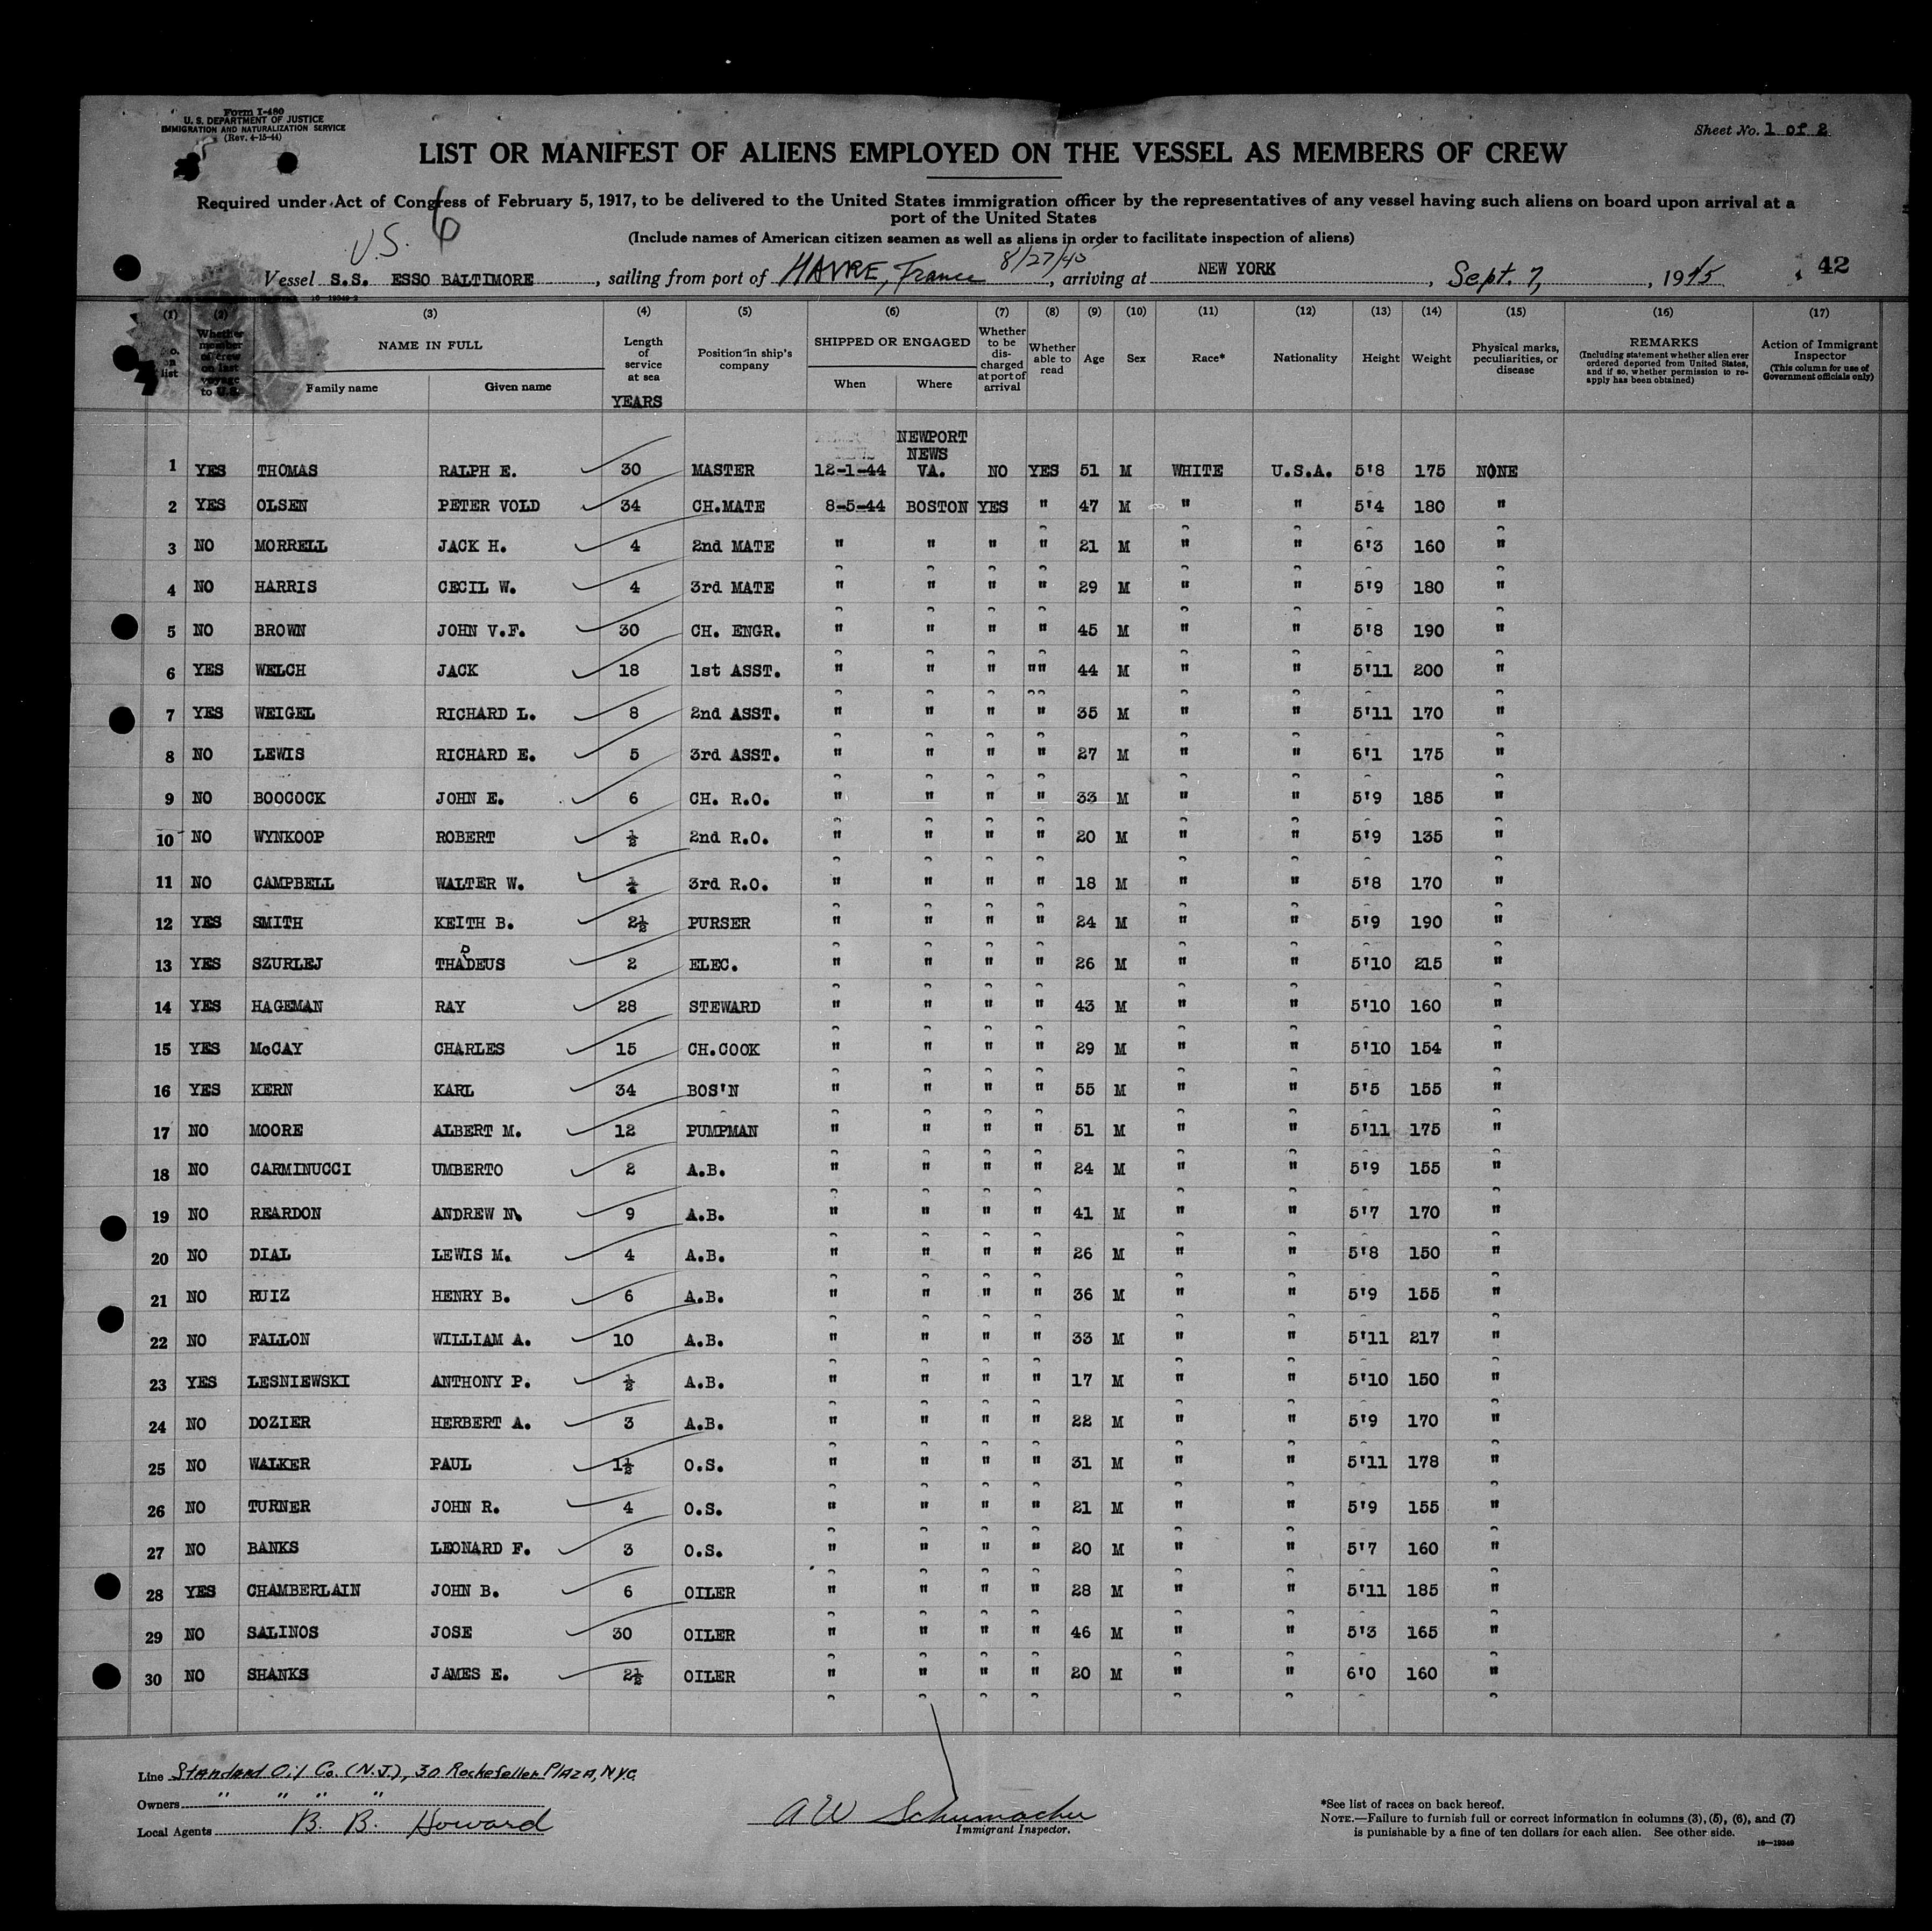 Form I-480
U. S. DEPARTMENT OF JUSTICE
IMMIGRATION AND NATURALIZATION SERVICE
(Rev. 4-15-44)
Sheet No. 1 of 2
LIST OR MANIFEST OF ALIENS EMPLOYED ON THE VESSEL AS MEMBERS OF CREW
Required under Act of Congress of February 5, 1917, to be delivered to the United States immigration officer by the representatives of any vessel having such aliens on board upon arrival at a
port of the United States
(Include names of American citizen seamen as well as aliens in order to facilitate inspection of aliens)
U.S. 6
Vessel S.S. ESSO BALTIMORE, sailing from port of HAVRE, France 8/27/45, arriving at NEW YORK, Sept. 7, 1945 42
16-19349-2
(1) (2) (3) (4) (5) (6) (7) (8) (9) (10) (11) (12) (13) (14) (15) (16) (17)
No. on list
Whether member of crew on last voyage to U.S.
NAME IN FULL
Family name
Given name
Length of service at sea
YEARS
Position in ship's company
SHIPPED OR ENGAGED
When
Where
Whether to be discharged at port of arrival
Whether able to read
Age
Sex
Race*
Nationality
Height
Weight
Physical marks, peculiarities, or disease
REMARKS
(Including statement whether alien ever ordered deported from United States, and if so, whether permission to reapply has been obtained)
Action of Immigrant Inspector
(This column for use of Government officials only)
1 YES THOMAS RALPH E. 30 MASTER 12-1-44 NEWPORT NEWS VA. NO YES 51 M WHITE U.S.A. 5'8 175 NONE
2 YES OLSEN PETER VOLD 34 CH.MATE 8-5-44 BOSTON YES " 47 M " " 5'4 180 "
3 NO MORRELL JACK H. 4 2nd MATE " " " " 21 M " " 6'3 160 "
4 NO HARRIS CECIL W. 4 3rd MATE " " " " 29 M " " 5'9 180 "
5 NO BROWN JOHN V.F. 30 CH. ENGR. " " " " 45 M " " 5'8 190 "
6 YES WELCH JACK 18 1st ASST. " " " "" 44 M " " 5'11 200 "
7 YES WEIGEL RICHARD L. 8 2nd ASST. " " " " 35 M " " 5'11 170 "
8 NO LEWIS RICHARD E. 5 3rd ASST. " " " " 27 M " " 6'1 175 "
9 NO BOOCOCK JOHN E. 6 CH. R.O. " " " " 33 M " " 5'9 185 "
10 NO WYNKOOP ROBERT ½ 2nd R.O. " " " " 20 M " " 5'9 135 "
11 NO CAMPBELL WALTER W. 3rd R.O. " " " " 18 M " " 5'8 170 "
12 YES SMITH KEITH B. 2½ PURSER " " " " 24 M " " 5'9 190 "
13 YES SZURLEJ THADDEUS 2 ELEC. " " " " 26 M " " 5'10 215 "
14 YES HAGEMAN RAY 28 STEWARD " " " " 43 M " " 5'10 160 "
15 YES McCAY CHARLES 15 CH.COOK " " " " 29 M " " 5'10 154 "
16 YES KERN KARL 34 BOS'N " " " " 55 M " " 5'5 155 "
17 NO MOORE ALBERT M. 12 PUMPMAN " " " " 51 M " " 5'11 175 "
18 NO CARMINUCCI UMBERTO 2 A.B. " " " " 24 M " " 5'9 155 "
19 NO REARDON ANDREW N. 9 A.B. " " " " 41 M " " 5'7 170 "
20 NO DIAL LEWIS M. 4 A.B. " " " " 26 M " " 5'8 150 "
21 NO RUIZ HENRY B. 6 A.B. " " " " 36 M " " 5'9 155 "
22 NO FALLON WILLIAM A. 10 A.B. " " " " 33 M " " 5'11 217 "
23 YES LESNIEWSKI ANTHONY P. ½ A.B. " " " " 17 M " " 5'10 150 "
24 NO DOZIER HERBERT A. 3 A.B. " " " " 22 M " " 5'9 170 "
25 NO WALKER PAUL 1½ O.S. " " " " 31 M " " 5'11 178 "
26 NO TURNER JOHN R. 4 O.S. " " " " 21 M " " 5'9 155 "
27 NO BANKS LEONARD F. 3 O.S. " " " " 20 M " " 5'7 160 "
28 YES CHAMBERLAIN JOHN B. 6 OILER " " " " 28 M " " 5'11 185 "
29 NO SALINOS JOSE 30 OILER " " " " 46 M " " 5'3 165 "
30 NO SHANKS JAMES E. 2½ OILER " " " " 20 M " " 6'0 160 "
Line Standard Oil Co. (N.J.), 30 Rockefeller Plaza, N.Y.C.
Owners " " " "
Local Agents B. B. Howard
A W Schumacher
Immigrant Inspector.
*See list of races on back hereof.
NOTE.—Failure to furnish full or correct information in columns (3), (5), (6), and (7)
is punishable by a fine of ten dollars for each alien. See other side.
16-19349